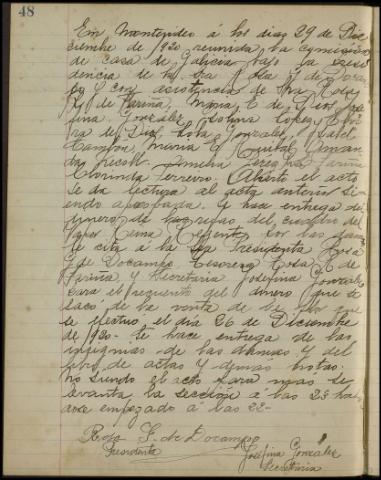 48
En Montevideo á los dias 29 de Dic
ciembre de 1930 reunida la comision
de casa de Galicia bajo la presi
dencia de la Sra Rosa G de Docam
po y con asistencia de Sra Rosa
R. de Fariña, Maria C de Jose
fina Gonzalez, Lopez
ra de Diz, Lola Gonzalez, Isabel
Cambon, Maria E Aman
da Amelia Fariña
Clorinda Ferreiro. Abierto el acto
se da lectura al acta anterior si
endo aprobada. Se hace entrega del
dinero de las del cuadro del
por las que
se cita á la Sra Presidenta Rosa
G de Docampo Tesorera Rosa R de
Fariña y Secretaria Josefina Gonzalez
para el recuento del dinero que se
saco de la venta de
se efectuo el dia 26 de Diciembre
de 1930- Se hace entrega de las
insignias de las damas y del
libro de actas y demas
no siendo el acto para mas se
levanta la sección á las 23 ha
vose empezado á las 22-
Rosa G. de Docampo
Presidenta
Josefina Gonzalez
Secretaria